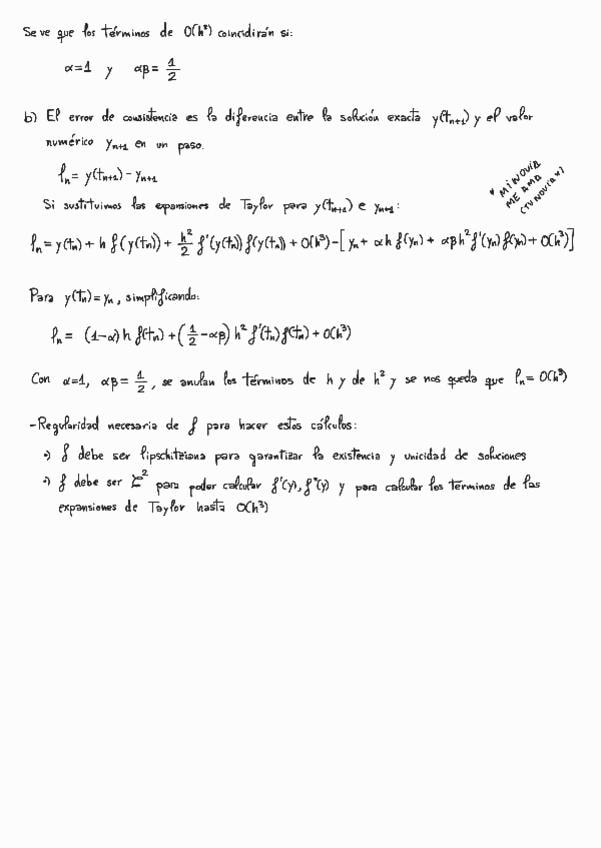 Se ve que los términos de O(h²) coincidirán si:
α=1 y αβ= 1/2
b) El error de consistencia es la diferencia entre la solución exacta y(tₙ₊₁) y el valor
numérico yₙ₊₁ en un paso.
lₙ= y(tₙ₊₁) - yₙ₊₁
* MI NOVIA
ME AMA
(TU NOVIA *)
Si sustituimos las expansiones de Taylor para y(tₙ₊₁) e yₙ₊₁:
lₙ= y(tₙ) + h f(y(tₙ)) + h²/2 f'(y(tₙ)) f(y(tₙ)) + O(h³) - [yₙ + αh f(yₙ) + αβh² f'(yₙ) f(yₙ) + O(h³)]
Para y(tₙ)=yₙ, simplificando:
lₙ= (1-α) h f(tₙ) + (1/2 - αβ) h² f'(tₙ) f(tₙ) + O(h³)
Con α=1, αβ= 1/2, se anulan los términos de h y de h² y se nos queda que lₙ= O(h³)
-Regularidad necesaria de f para hacer estos cálculos:
·) f debe ser lipschitziana para garantizar la existencia y unicidad de soluciones
·) f debe ser C² para poder calcular f'(y), f''(y) y para calcular los términos de las
expansiones de Taylor hasta O(h³)